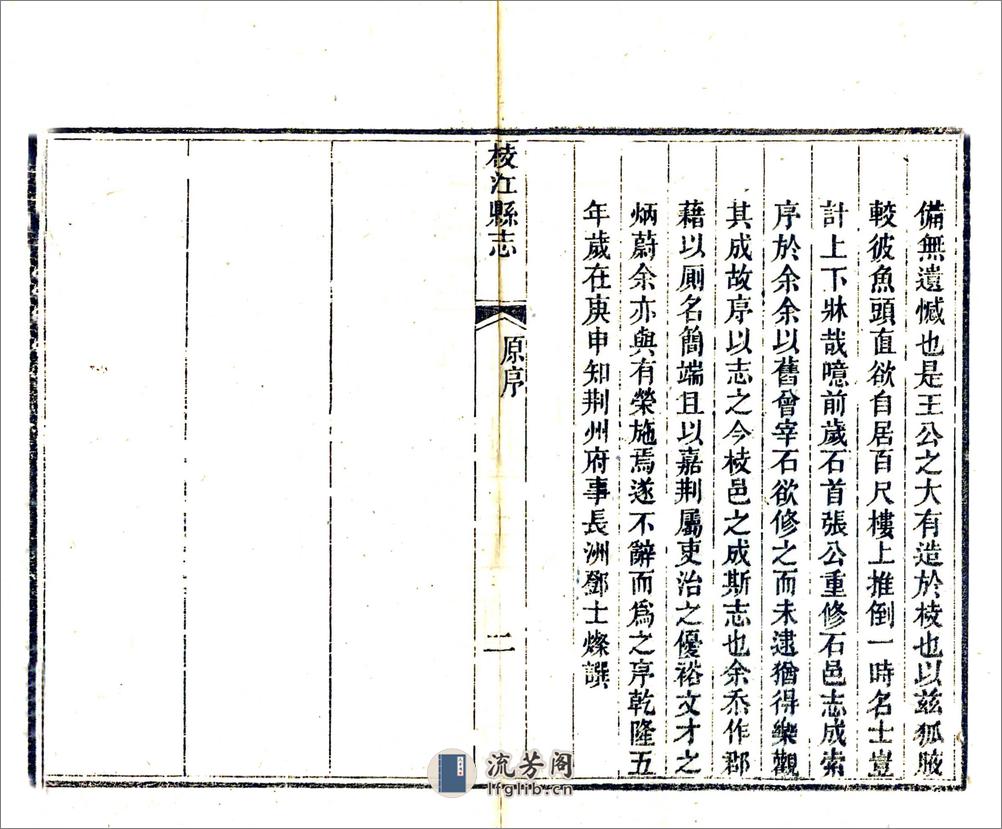 備無遺憾也是王公之大有造於棱也以兹狐腋
較彼魚頭直欲自居百尺樓上推倒一時名士豈
計上下牀哉噫前歲石首張公重修石邑志成索
序於余余以舊曾宰石欲修之而未逮猶得樂觀
其成故序以志之今棱邑之成斯志也余忝作郡
藉以厠名簡端且以嘉荆屬吏治之優裕文才之
炳蔚余亦與有榮施焉遂不辭而為之序乾隆五
年歲在庚申知荆州府事長洲鄧士燦譔
棱江縣志
原序
二
流芳阁
lfglib.cn